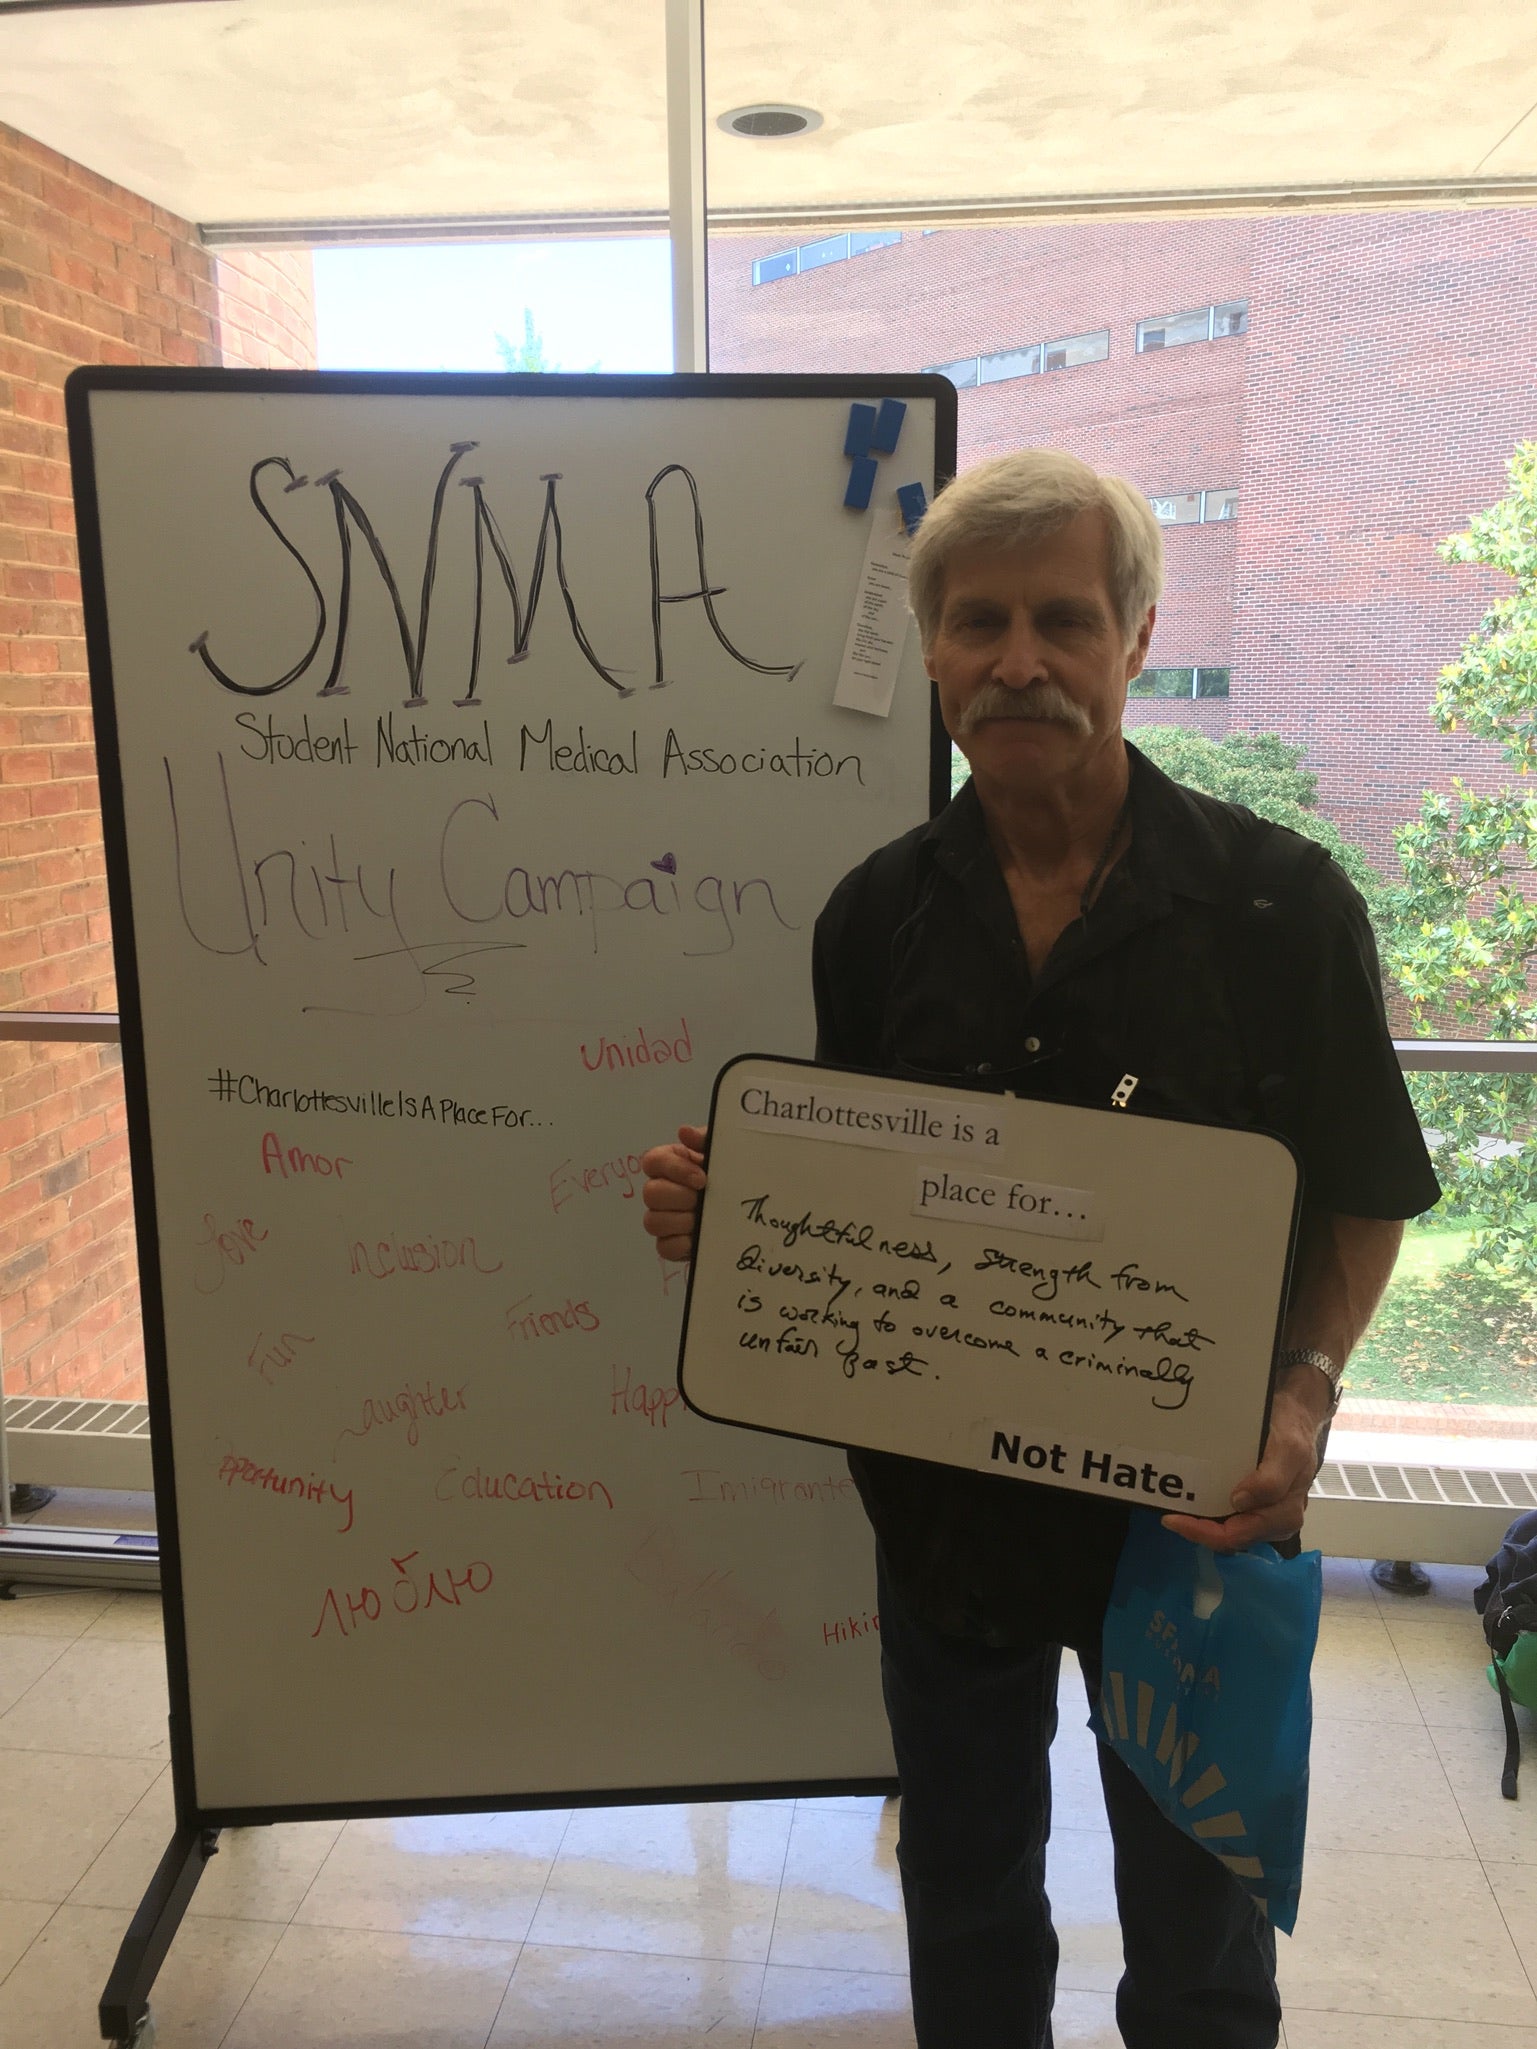 SNMA
Student National Medical Association
Unity Campaign
Unidad
#CharlottesvilleIsAPlaceFor...
Amor
Love
Inclusion
Friends
Fun
Laughter
Opportunity
Education
Imigrante
люблю
Charlottesville is a
place for...
Thoughtfulness, strength from
diversity, and a community that
is working to overcome a criminally
unfair past.
Not Hate.